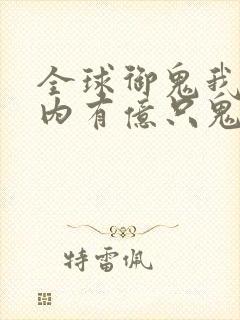 全球御鬼我
内有億只鬼
特雷佩